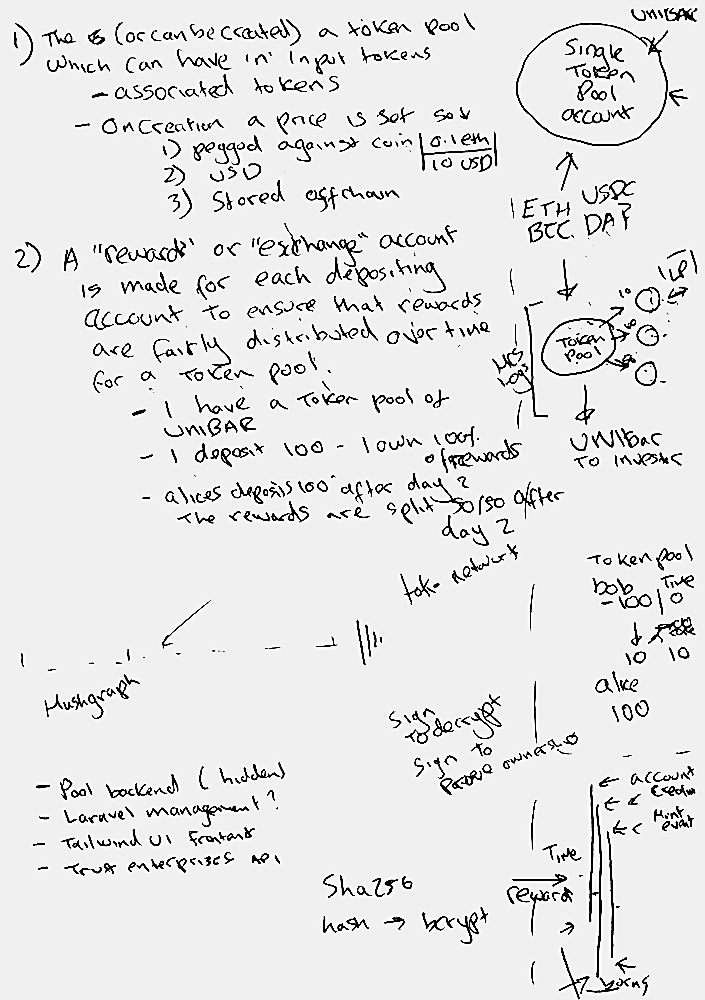 1) The (or can be created) a token pool
which can have 'n' input tokens
- associated tokens
- On creation a price is set so
1) pegged against coin 0.1 eth
10 USD
2) USD
3) Stored offchain
2) A "rewards" or "exchange" account
is made for each depositing
account to ensure that rewards
are fairly distributed over time
for a Token pool.
- I have a Token pool of
UNIBAR
- I deposit 100 - I own 100%
of rewards
- alices deposits 100 after day 2
The rewards are split 50/50 after
day 2
UNIBAR
Single
Token
Pool
account
ETH USDC
BTC DAI
Token
Pool
UNIbar
To Investor
network
Token pool
bob Time
-100 | 0
10 10
alice
100
Hashgraph
Sign
To decrypt
Sign to
Prove ownership
- Pool backend (hidden)
- Laravel management?
- Tailwind UI frontend
- Trust enterprises API
Sha256
hash → bcrypt
account
Mint
event
Time
reward
burns